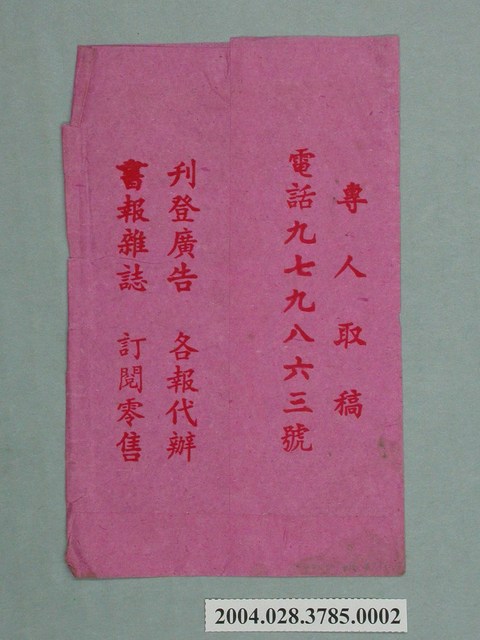 專人取稿
電話九七九八六三號
刊登廣告 各報代辦
書報雜誌 訂閱零售
2004.028.3785.0002